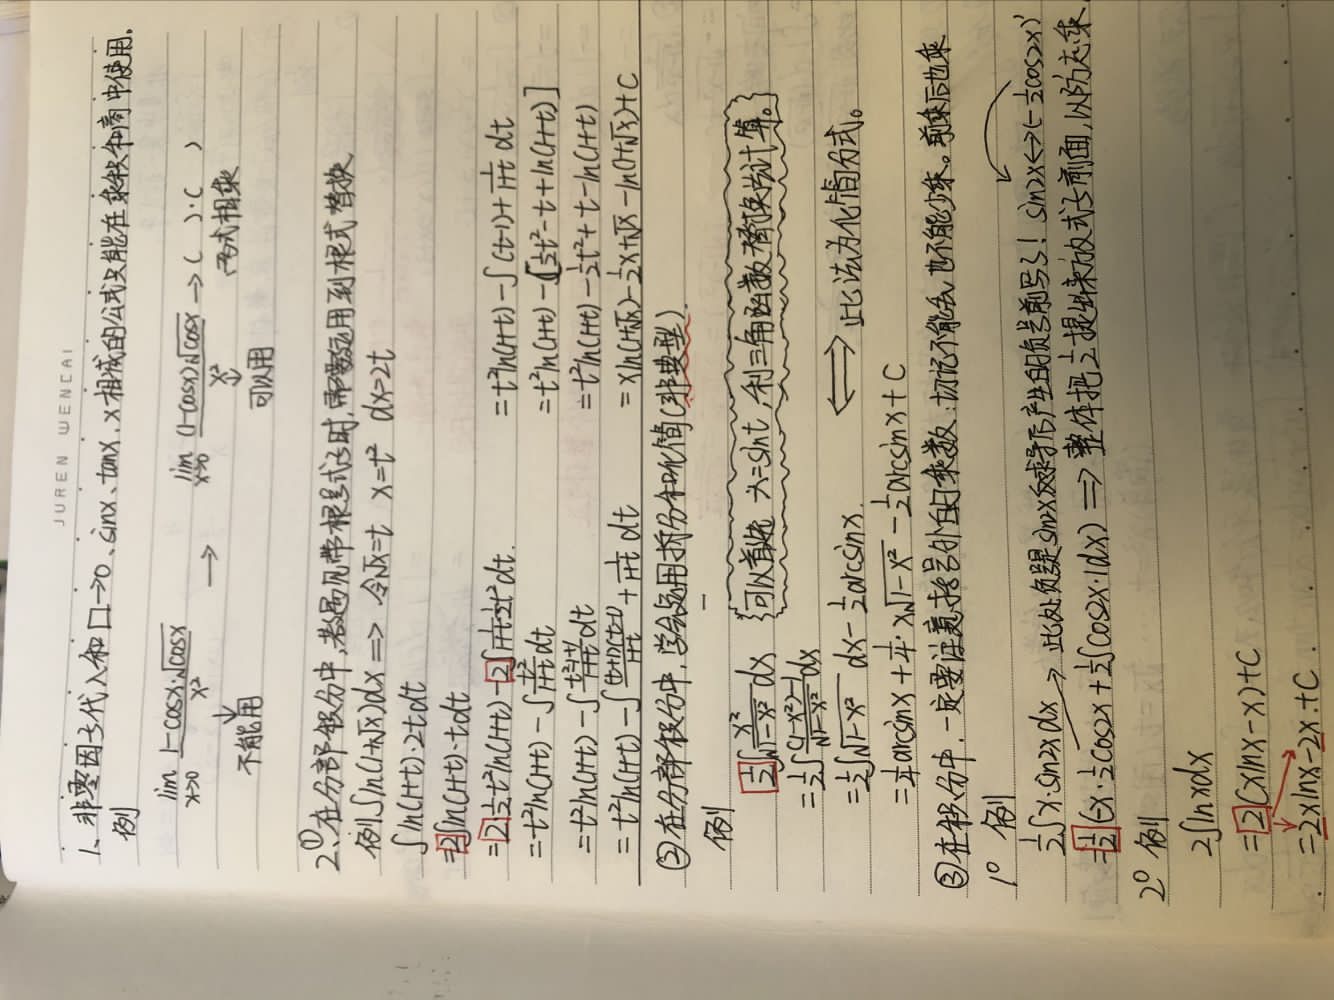 JUREN WENCAI
1、非零因子代入和□→0、sinx、tanx、x相减的公式只能在乘积和商中使用.
例 lim x→0 1-cosx√cosx / x² → lim x→0 (1-cosx)√cosx / x² → ( )·C
不能用 可以用 两式相乘
2、① 在分部积分中,若遇见带根式子时,需要运用到根式替换
例 ∫ln(1+√x)dx => 令√x=t x=t² dx=2t
∫ln(1+t)·2tdt
=2∫ln(1+t)·tdt
=2·½t²ln(1+t)-2∫1/(1+t)·½t²dt.
=t²ln(1+t)-∫t²/(1+t)dt
=t²ln(1+t)-∫(t²-1+1)/(1+t)dt
=t²ln(1+t)-∫(t+1)(t-1)/(1+t)+1/(1+t)dt
=t²ln(1+t)-∫(t-1)+1/(1+t)dt
=t²ln(1+t)-[½t²-t+ln(1+t)]
=t²ln(1+t)-½t²+t-ln(1+t)
=xln(1+√x)-½x+√x-ln(1+√x)+C
② 在分部积分中,学会运用拆分和化简(非典型).
例 ½∫x²/√1-x² dx 可以直接x=sint,利三角函数替换法计算。
=½∫(1-x²)-1/√1-x² dx
=½∫√1-x² dx-½arcsinx. ⟺ 此法为化简分式。
=¼arcsinx+¼·x√1-x²-½arcsinx+C
③ 在积分中,一定要注意括号外面的乘数:切记不能丢,也不能少乘。前乘后也乘
1° 例
½∫x·sin2xdx → 此处负号是sinx反求导后产生的负号前写了! sin2x<->(-½cos2x)'
=½(-x·½cos2x+½∫cos2x·1dx) => 整体把½提出来放式子前面,以防忘乘
2° 例
2∫lnxdx
=2(xlnx-x)+C
=2xlnx-2x.+C.